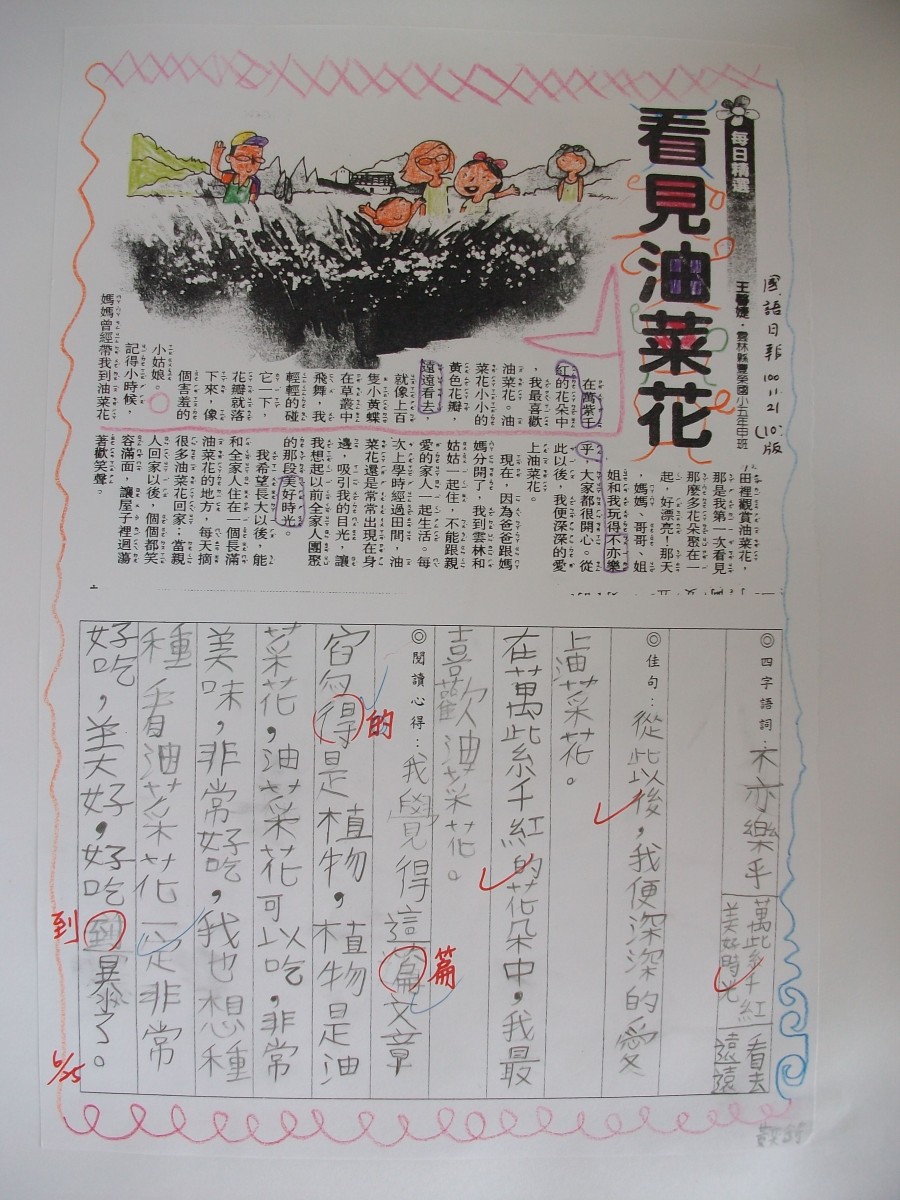 每日精選
看見油菜花
王馨婕・雲林縣豐榮國小五年甲班
國語日報 100.11.21 (10)版
在萬紫千
紅的花朵中
，我最喜歡
油菜花。油
菜花小小的
黃色花瓣，
遠遠看去，
就像上百
隻小黃蝶
在草叢中
飛舞，我
輕輕的碰
它一下，
花瓣就落
下來，像
個害羞的
小姑娘。
記得小時候，
媽媽曾經帶我到油菜花
田裡觀賞油菜花，
那是我第一次看見
那麼多花朵聚在一
起，好漂亮！那天
，媽媽、哥哥、姐
姐和我玩得不亦樂
乎，大家都很開心。從
此以後，我便深深的愛
上油菜花。
現在，因為爸爸跟媽
媽分開了，我到雲林和
姑姑一起住，不能跟親
愛的家人一起生活。每
次上學時經過田間，油
菜花還是常常出現在身
邊，吸引我的目光，讓
我想起以前全家人團聚
的那段美好時光。
我希望長大以後，能
和全家人住在一個長滿
油菜花的地方，每天摘
很多油菜花回家；當親
人回家以後，個個都笑
容滿面，讓屋子裡迴蕩
著歡笑聲。
◎四字語詞：不亦樂乎 萬紫千紅 看去
美好時光 遠遠
◎佳句：從此以後，我便深深的愛
上油菜花。
在萬紫千紅的花朵中，我最
喜歡油菜花。
◎閱讀心得：我覺得這篇文章
篇
寫得是植物，植物是油
的
菜花，油菜花可以吃，非常
美味，非常好吃，我也想種
種看油菜花一定非常
好吃，羊大好，好吃到暴了。
到
6/25